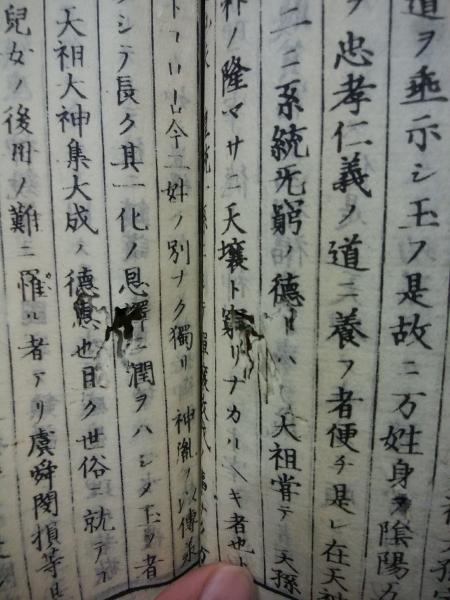 道ヲ垂示シ玉フ是故ニ万姓身ヲ陰陽
ヲ忠孝仁義ノ道ニ養フ者便チ是レ在天神
二ニ系統无窮ノ德 天祖嘗テ天孫
祚ノ隆マサニ天壤ト窮リナカルヘキ者也ト
古今一姓ノ別ナク獨リ 神胤 傳承
シテ長ク其一化ノ恩澤ニ潤ヲハシメ玉フ者
天祖大神集大成ノ德惠也曰ク世俗就テ
兒女ノ後母ノ難ニ罹ル者アリ虞舜閔損等